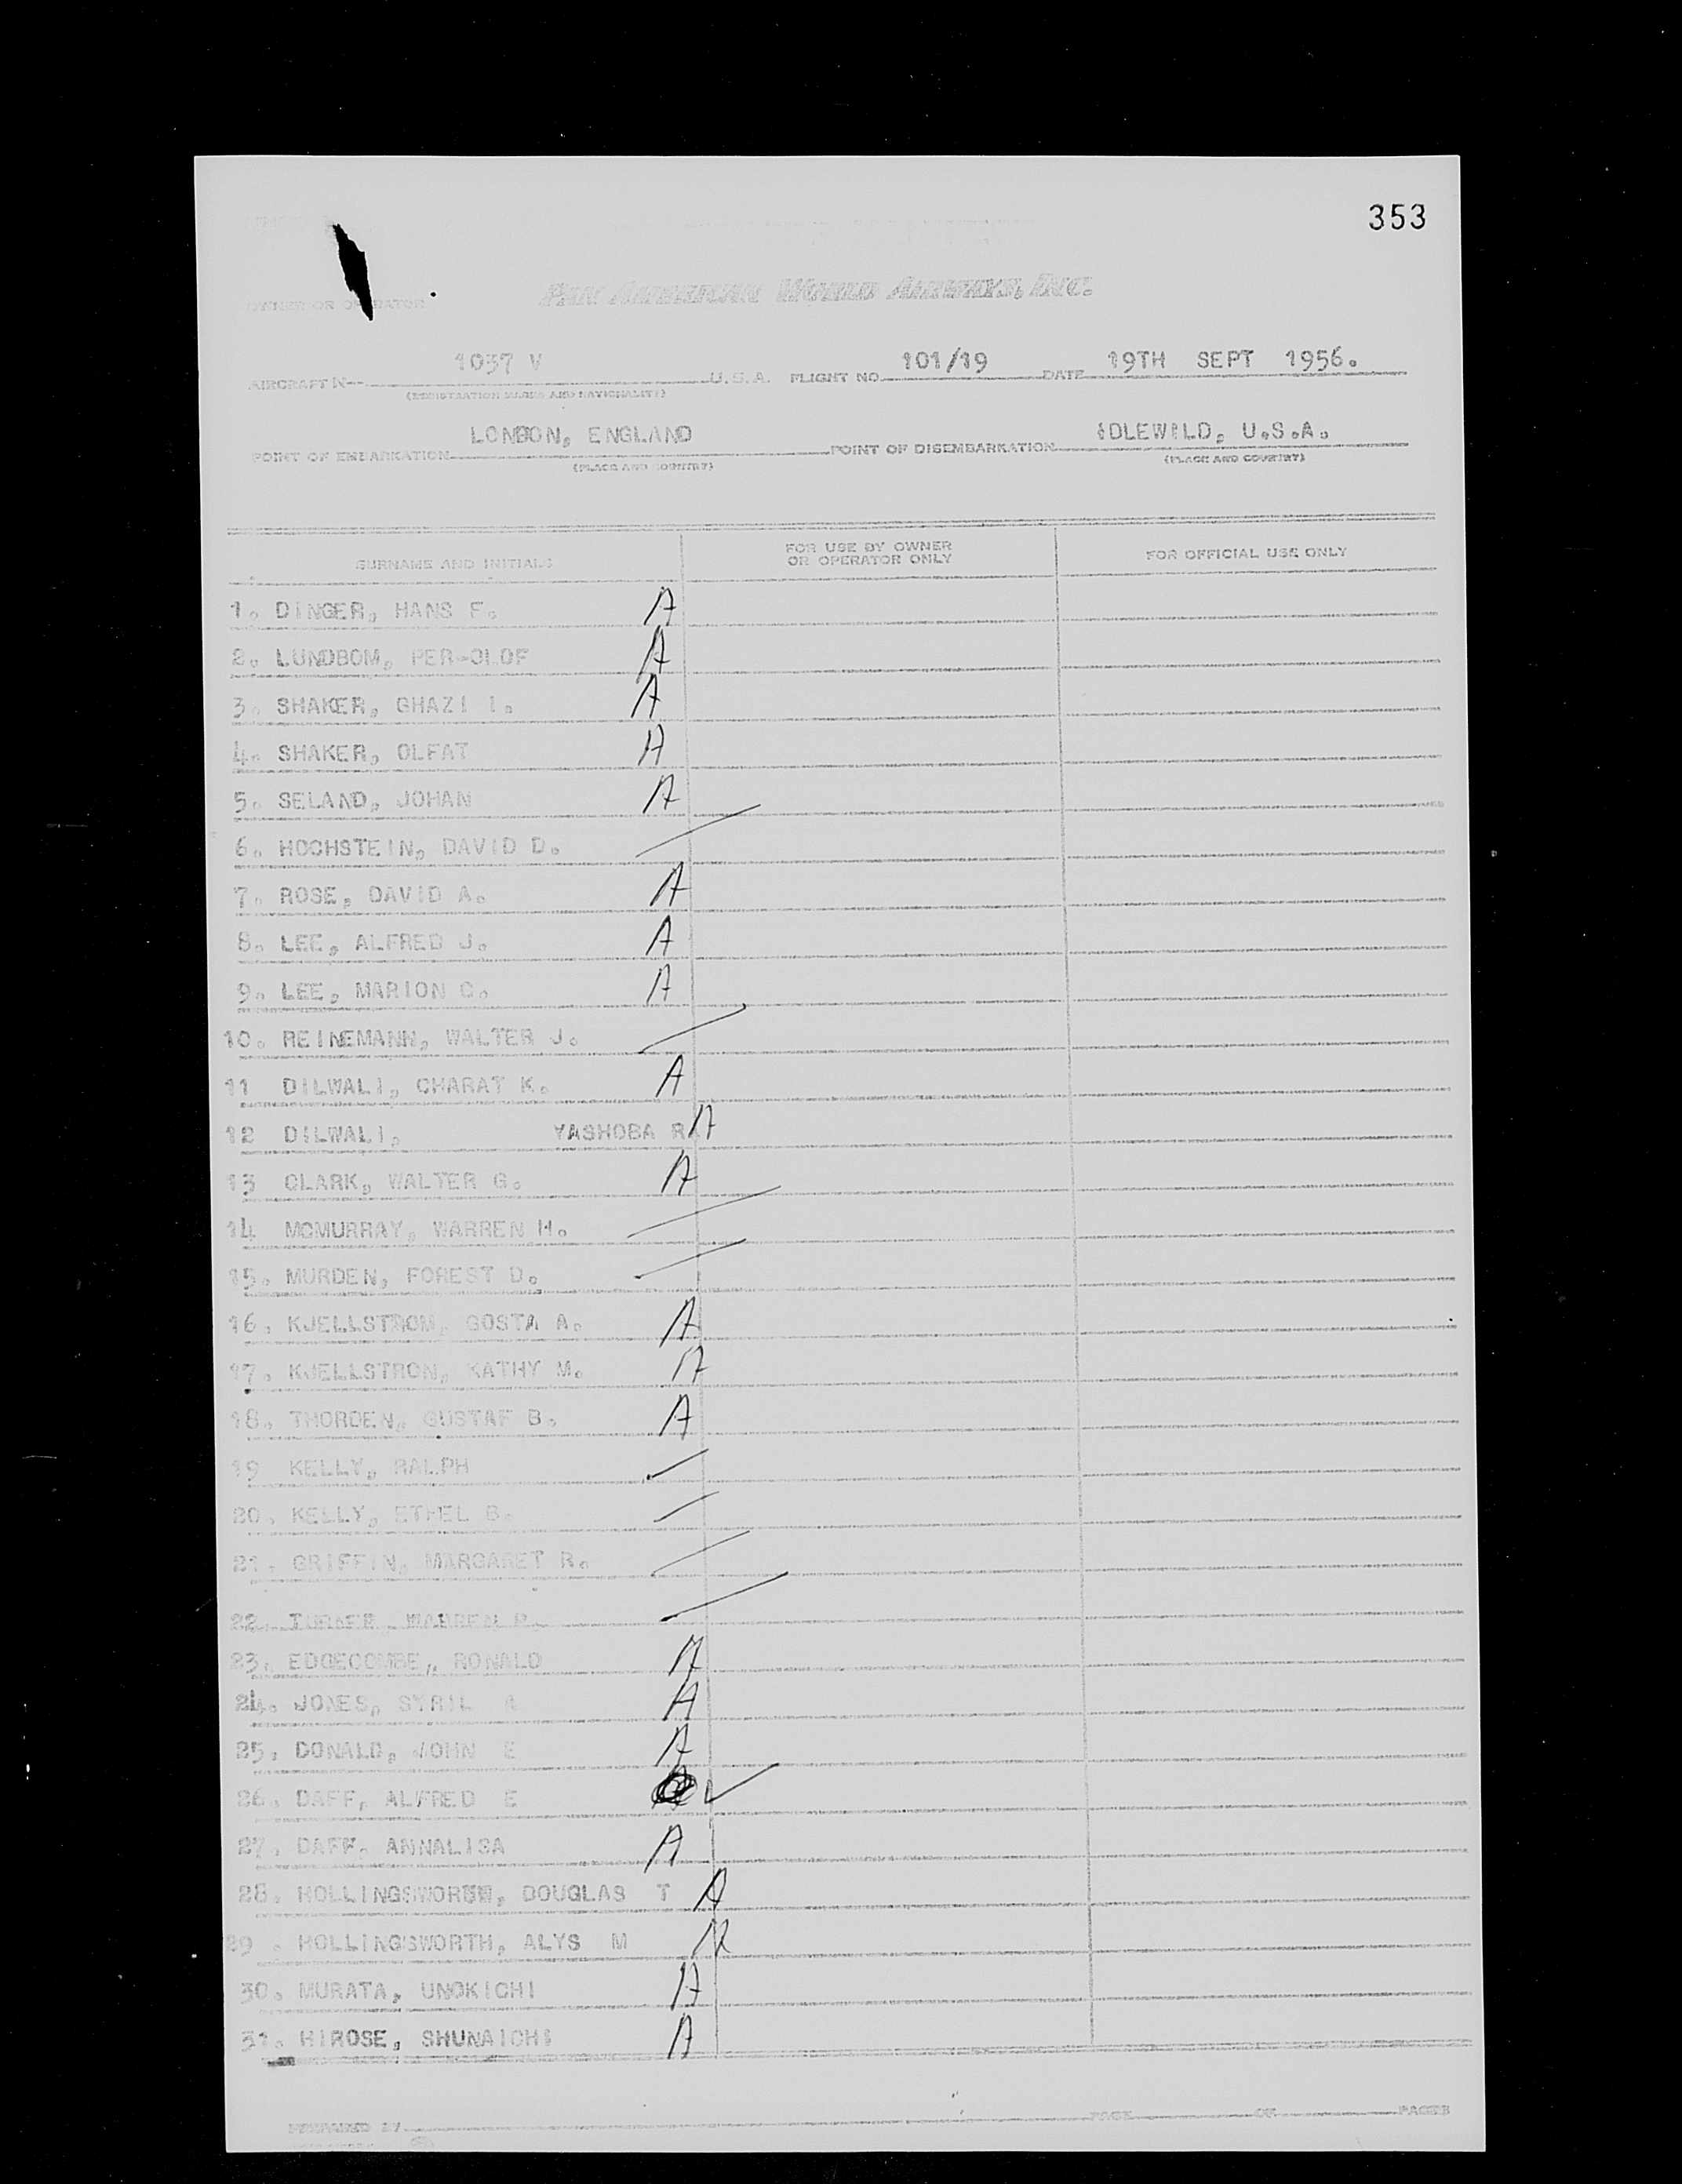 353
OWNER OR OPERATOR
PAN AMERICAN WORLD AIRWAYS, INC.
1037 V 101/19 19TH SEPT 1956.
AIRCRAFT N-- U.S.A. FLIGHT NO. DATE
(REGISTRATION MARKS AND NATIONALITY)
LONDON, ENGLAND IDLEWILD, U.S.A.
POINT OF EMBARKATION POINT OF DISEMBARKATION
(PLACE AND COUNTRY) (PLACE AND COUNTRY)
SURNAME AND INITIALS FOR USE BY OWNER OR OPERATOR ONLY FOR OFFICIAL USE ONLY
1. DINGER, HANS F. A
2. LUNDBOM, PER-OLOF A
3. SHAKER, GHAZI I. A
4. SHAKER, OLFAT A
5. SELAND, JOHAN A
6. HOCHSTEIN, DAVID D.
7. ROSE, DAVID A. A
8. LEE, ALFRED J. A
9. LEE, MARION C. A
10. REINEMANN, WALTER J.
11 DILWALI, CHARAT K. A
12 DILWALI, YASHOBA R. A
13 CLARK, WALTER G. A
14 MCMURRAY, WARREN H.
15. MURDEN, FOREST D.
16. KJELLSTROM, GOSTA A. A
17. KJELLSTRON, KATHY M. A
18. THORDEN, GUSTAF B. A
19 KELLY, RALPH
20. KELLY, ETHEL B.
21. GRIFFIN, MARGARET R.
22. TURNER, WARREN R.
23. EDGECOMBE, RONALD A
24. JONES, SYRIL A
25. DONALD, JOHN E A
26. DAFF, ALFRED E
27. DAFF, ANNALISA A
28. HOLLINGSWORTH, DOUGLAS T A
29 . HOLLINGSWORTH, ALYS M A
30. MURATA, UNOKICHI A
31. HIROSE, SHUNAICHI A
PREPARED BY PAGE OF PAGES